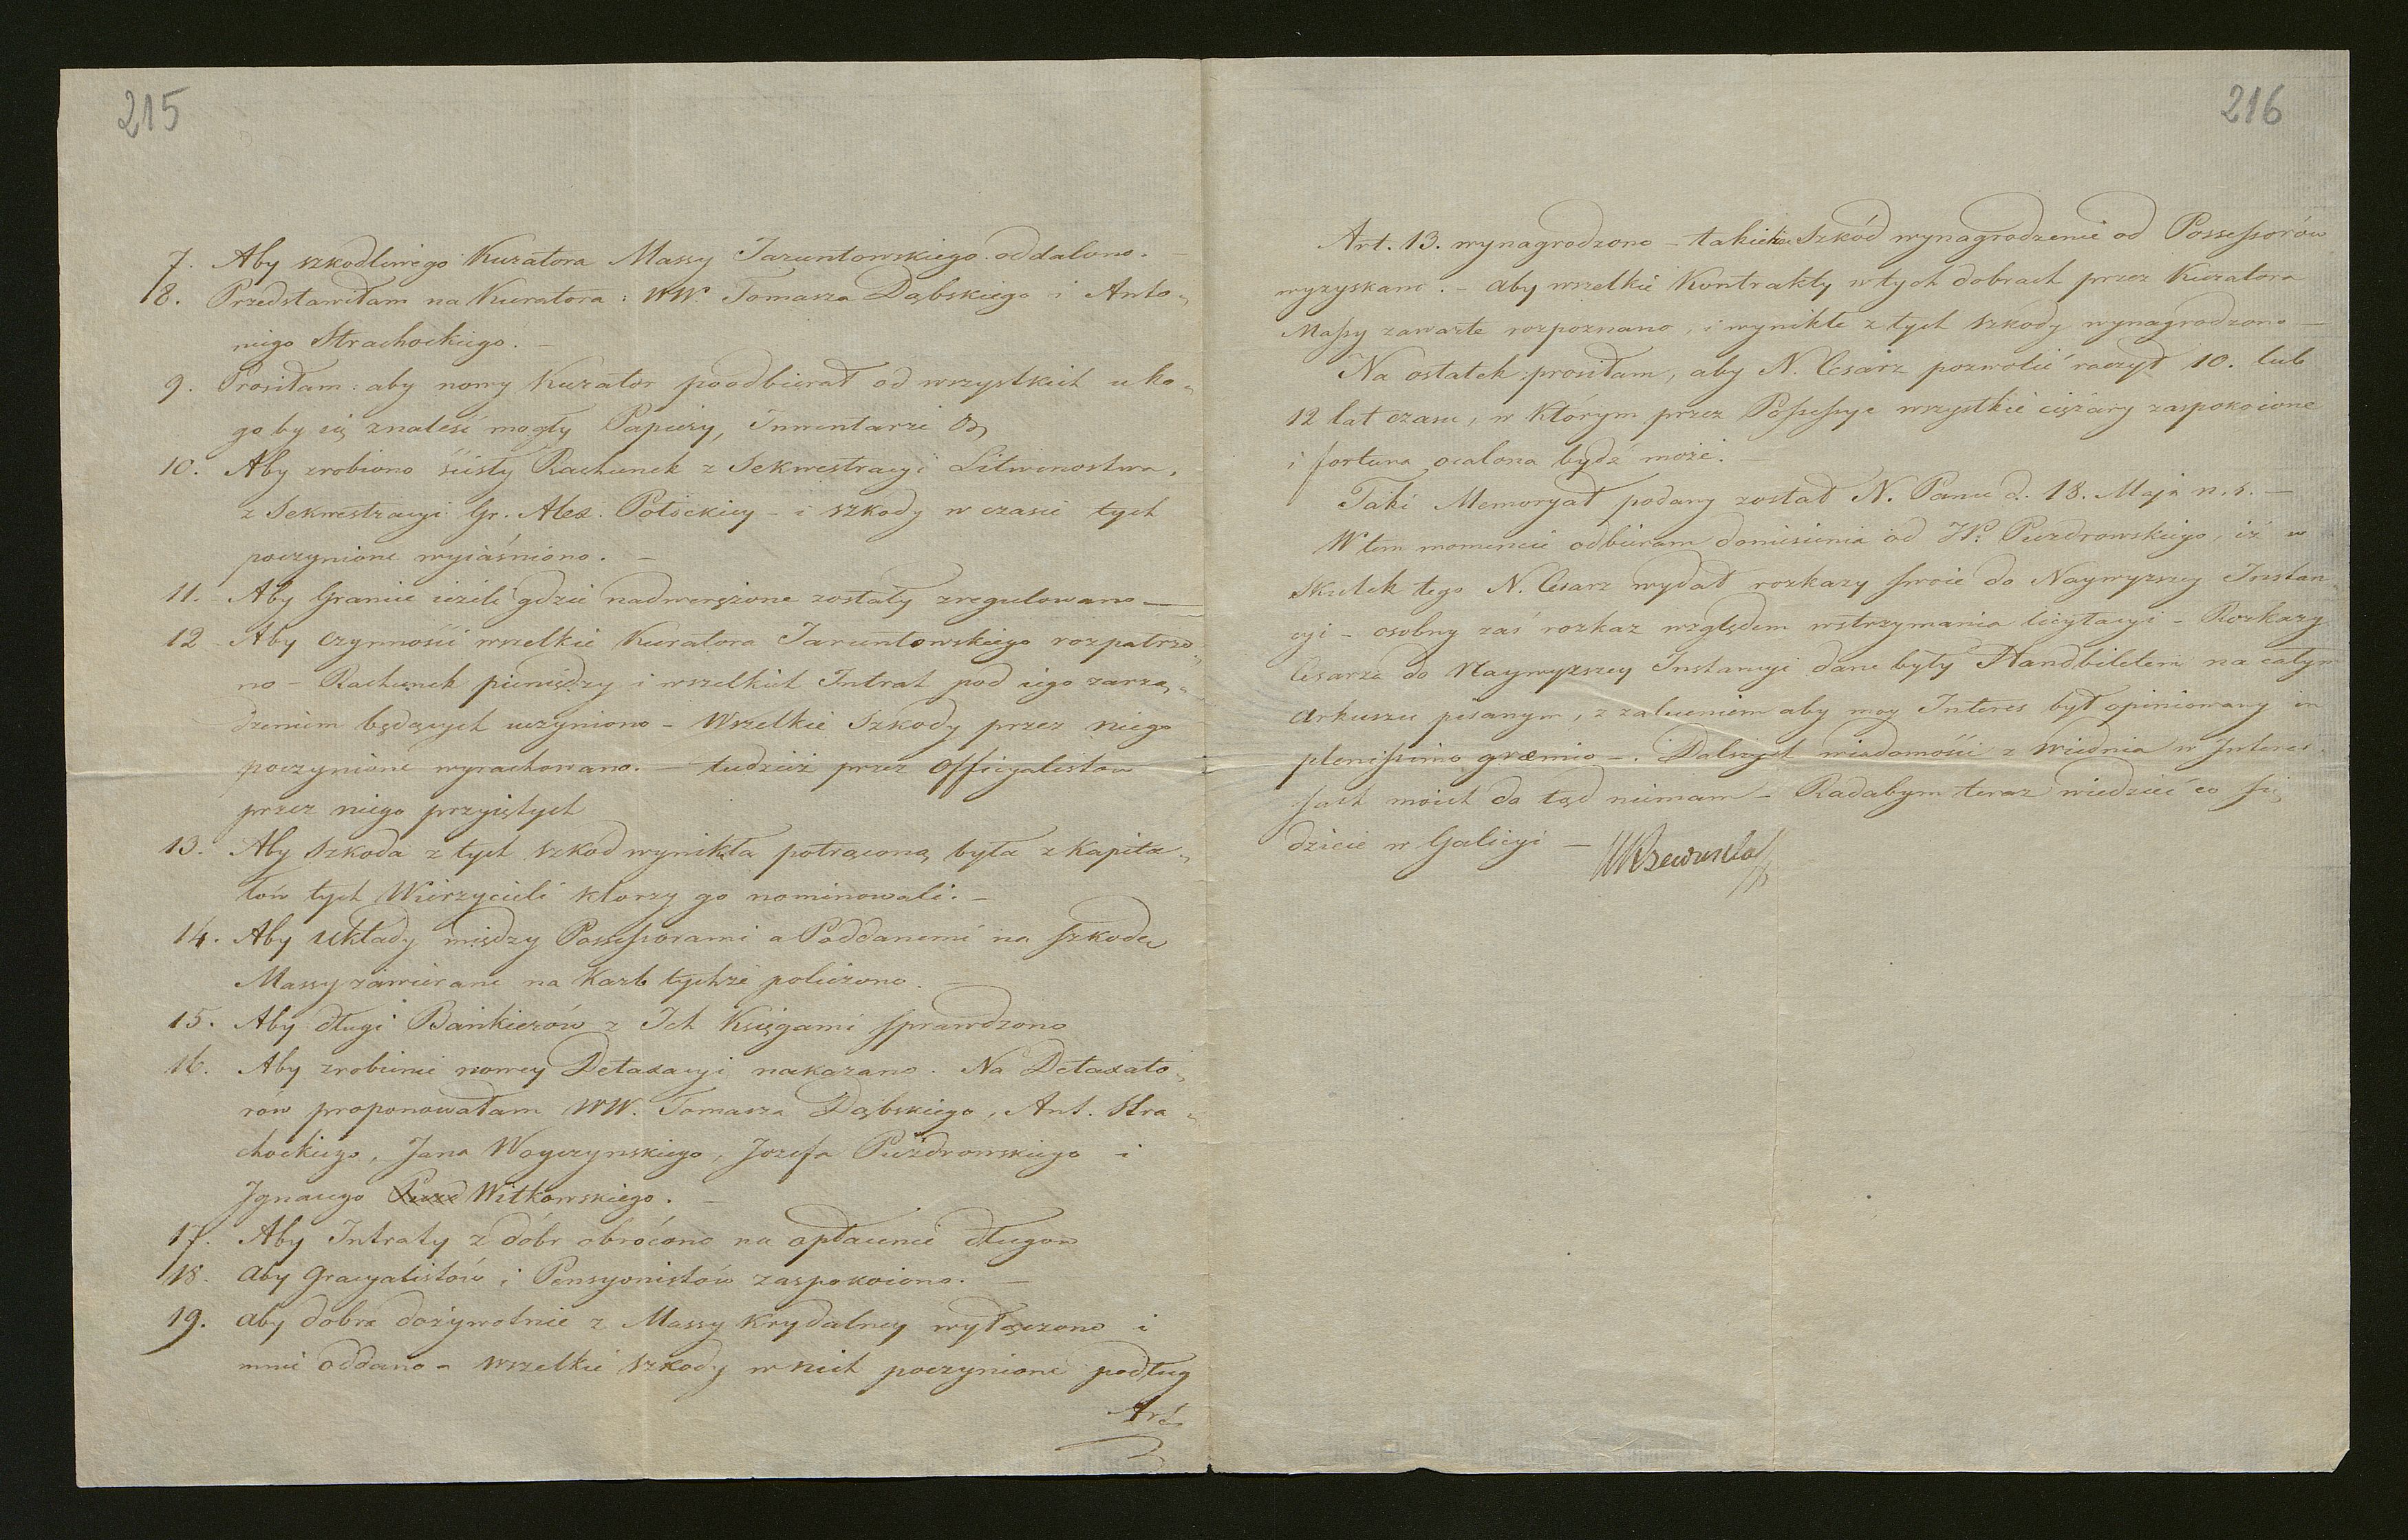 215
7. Aby szkodliwego Kuratora Massy Jaruntowskiego oddalono. —
8. Przedstawiłam na Kuratora: WW. Tomasza Dąbskiego i Anto-
niego Strachockiego. —
9. Prosiłam: aby nowy Kurator poodbierał od wszystkich u ko-
go by się znaleść mogły Papiery, Inwentarze
10. Aby zrobiono ścisły Rachunek z Sekwestracyi Litwinostwa,
z Sekwestracyi Gr. Alex. Potockiey - i szkody w czasie tych
poczynione wyiaśniono. —
11. Aby Granice ieżeli gdzie nadwerężone zostały zregulowano —
12 - Aby czynności wszelkie Kuratora Jaruntowskiego rozpatrzo-
no - Rachunek pieniędzy i wszelkich Intrat pod iego zarzą-
dzeniem będących uczyniono - Wszelkie Szkody przez niego
poczynione wyrachowano. - tudzież przez Officyalistow
przez niego przyiętych
13. Aby Szkoda z tych szkod wynikła potrąconą była z Kapita-
łów tych Wierzycieli ktorzy go nominowali. —
14. Aby układy między Possessorami a Poddanemi na szkodę
Massy zawierane na karb tychże policzono. —
15. Aby długi Bankierów z Ich Księgami sprawdzono
16. Aby zrobienie nowey Detaxacyi nakazano. Na Detaxato-
rów proponowałam WW. Tomasza Dąbskiego, Ant. Stra-
chockiego, Jana Woyczynskiego, Jozefa Puzdrowskiego i
Ignacego Puzd Witkowskiego. —
17. Aby Intraty z dóbr obrócono na opłacenie długow
18. aby Gracyalistów i Pensyonistów zaspokoiono. —
19. aby dobra dożywotnie z Massy Krydalney wyłączono i
mnie oddano - wszelkie szkody w nich poczynione podług
Art.
216
Art. 13. wynagrodzono - takież Szkód wynagrodzenie od Possessorów
wyzyskano. - aby wszelkie Kontrakty w tych dobrach przez Kuratora
Massy zawarte rozpoznano, i wynikłe z tych szkody wynagrodzono —
Na ostatek prosiłam, aby N. Cesarz pozwolić raczył 10. lub
12 lat czasu, w którym przez Possessye wszystkie ciężary zaspokoione
i fortuna ocalona bydź może. —
Taki Memoryał podany został N. Panu d. 18. Maja n. s. —
W tem momencie odbieram doniesienia od JP. Puzdrowskiego, iż w
Skutek tego N. Cesarz wydał rozkazy swoie do Naywyzszey Instan-
cyi - osobny zaś rozkaz względem wstrzymania licytacyi - Rozkazy
Cesarza do Naywyzszey Instancyi dane były Handbiletem na całym
arkuszu pisanym, z zaleceniem aby moy Interes był opiniowany in
plenissimo græmio -. Dalszych wiadomości z Wiednia w Interes-
sach moich do tąd niemam - Radabym teraz wiedzieć co się
dzieie w Galicyi —